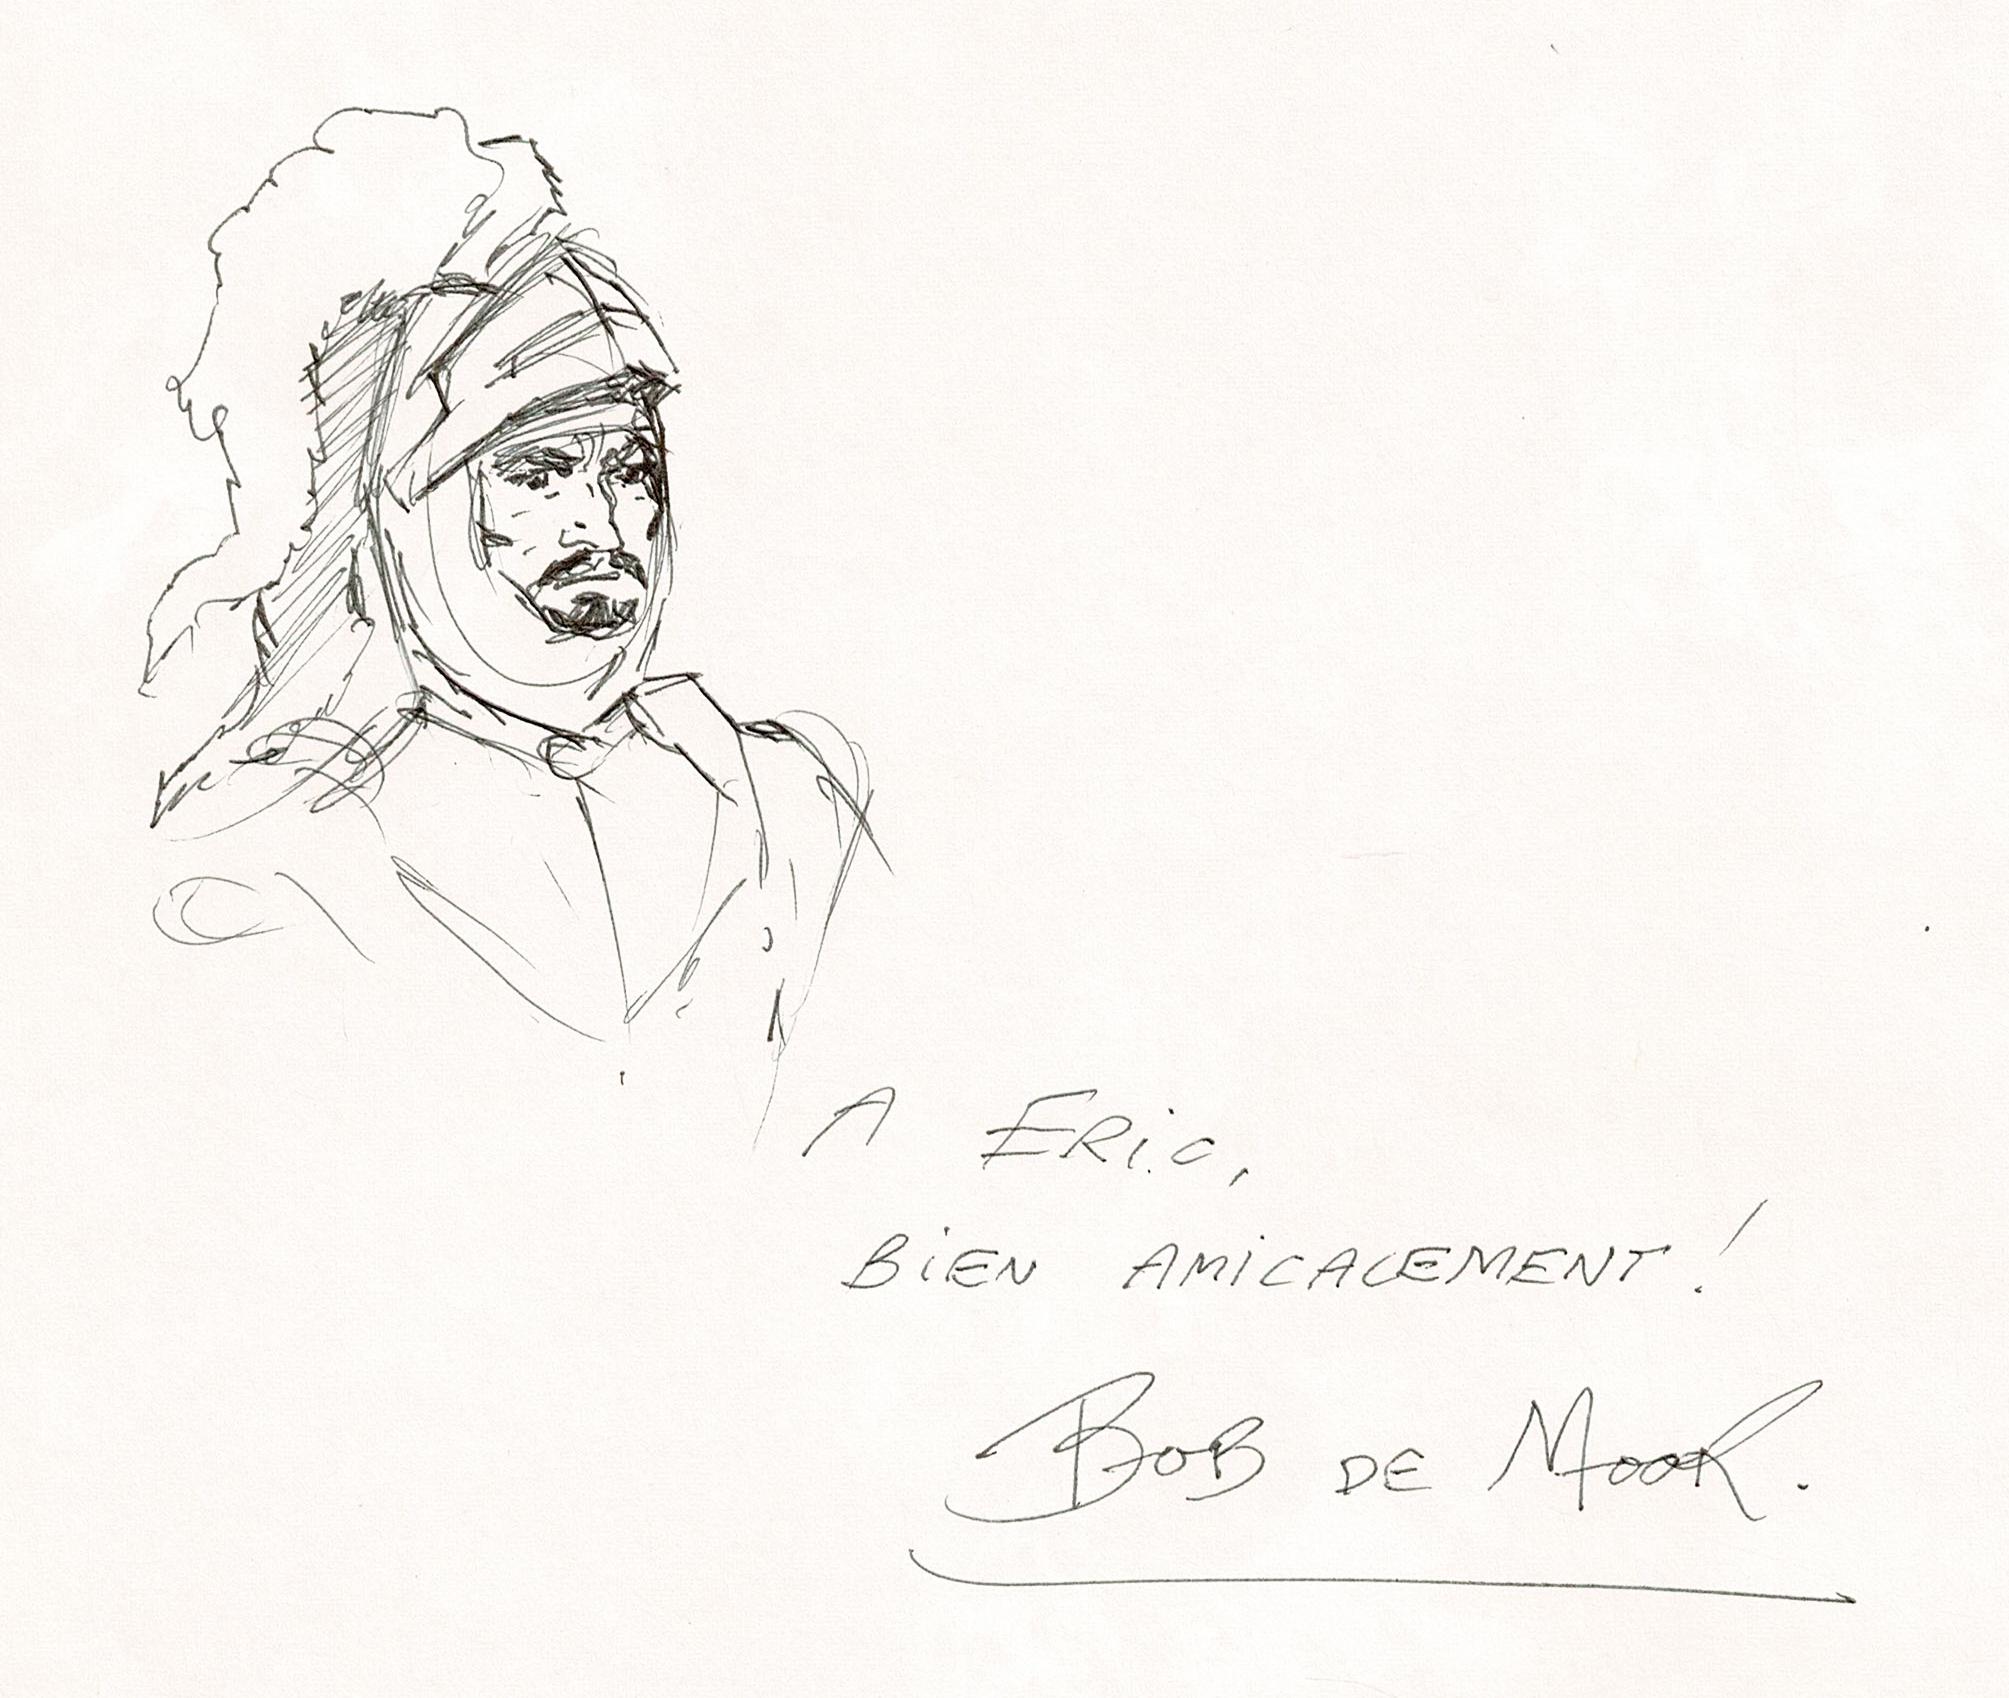 A ERiC,
BiEN AMiCALEMENT!
BOB DE MOOR.